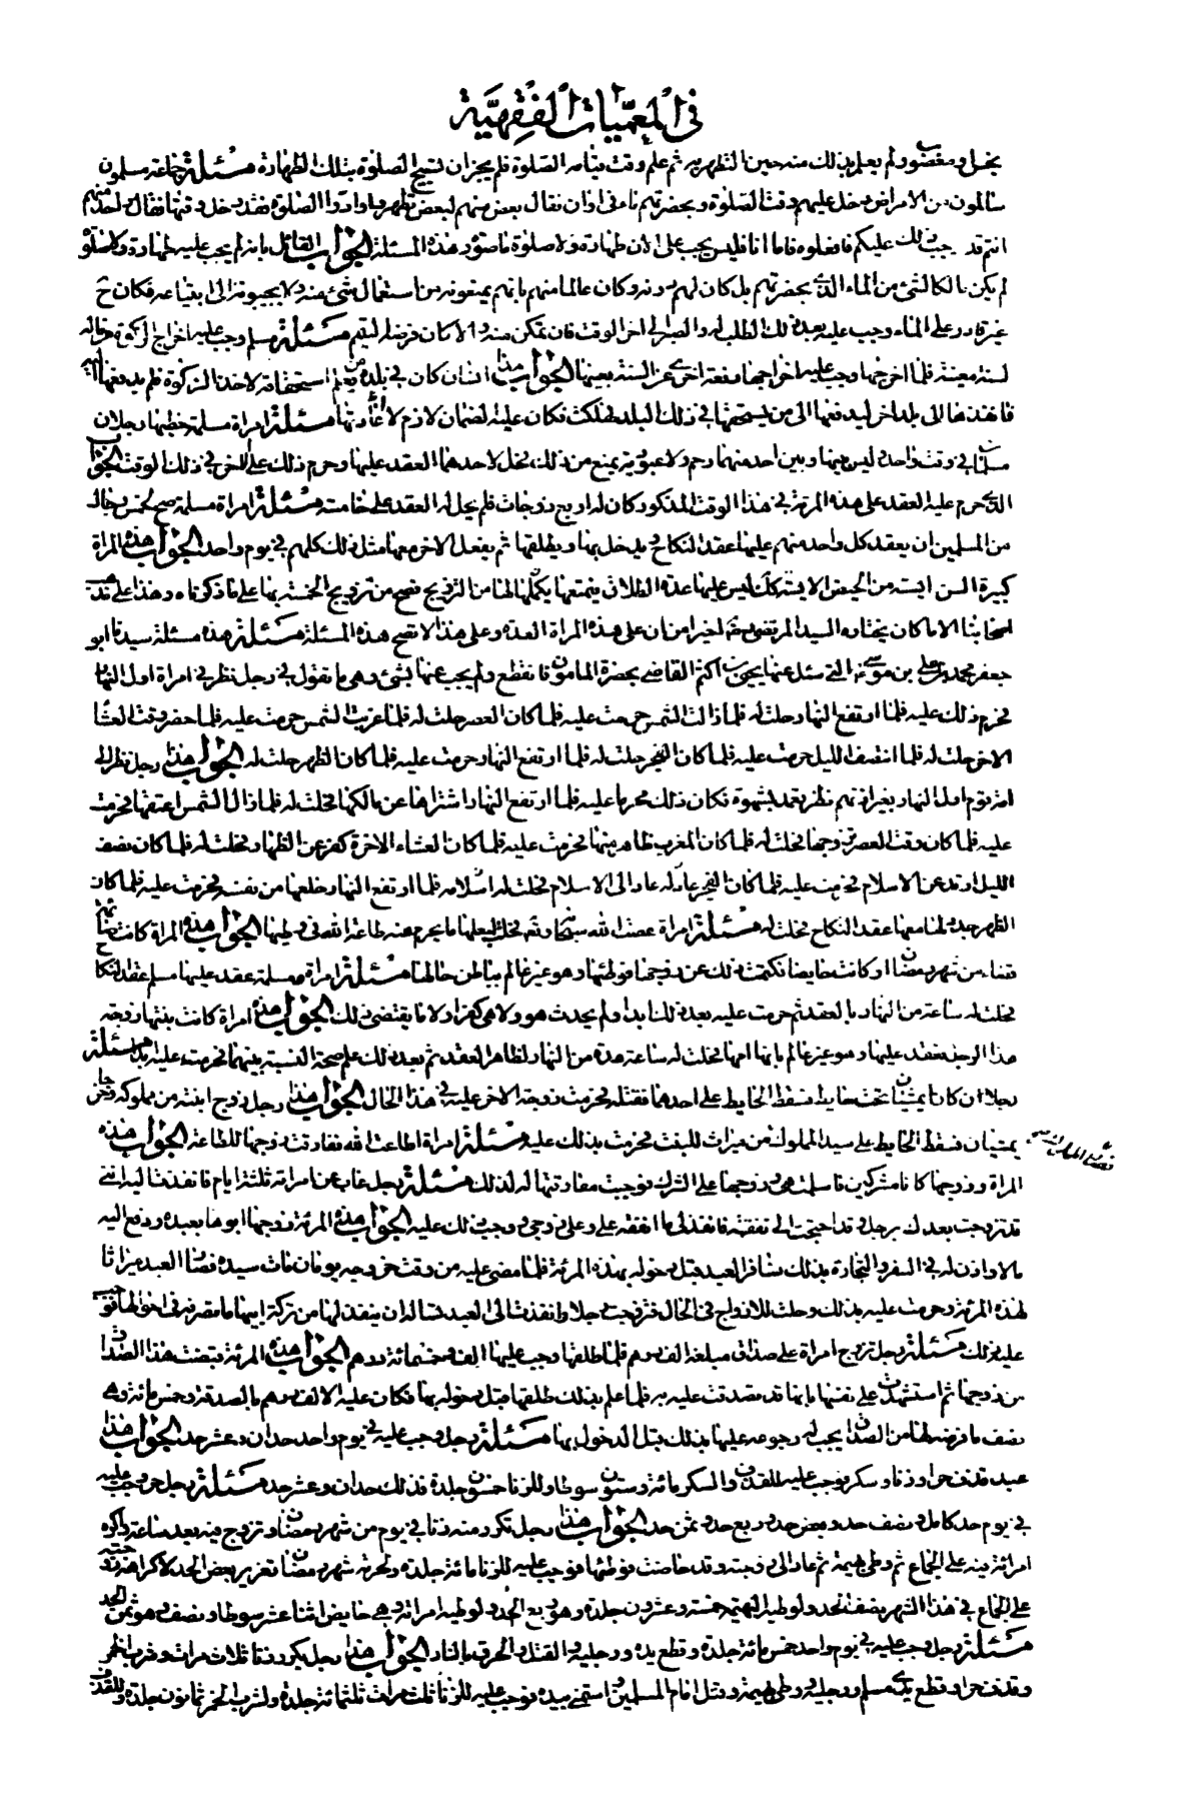 فى المعميات الفقهية
بنجس او مغصوب ولم يعلم بذلك منه حين التطهر به ثم علم وقت قيامه الصلوة فلم يجز ان يستبيح الصلوة بتلك الطهارة مسئلة جماعة مسلمون
سالمون من الامراض دخل عليهم وقت الصلوة وبحضرتهم ماء فى اوان فقال بعض منهم لبعض تطهروا وادوا الصلوة فقد دخل وقتها فقال واحد منهم
انتم قد يجب ذلك عليكم فافعلوه فاما انا فليس يجب على الان طهارة ولا صلوة ما صورة هذه المسئلة الجواب القائل بانه لم يجب عليه طهارة ولا صلوة
لم يكن مالكا لشئ من الماء الذى بحضرتهم بل كان لهم دونه وكان عالما منهم بانهم يمنعونه من استعمال شئ منه ولا يجيبونه الى ابتياعه فكان ح
غير قادر على الماء وجب عليه بعد ذلك الطلب له والصبر الى اخر الوقت فان تمكن منه والا كان فرضه التيمم مسئلة مسلم وجب عليه اخراج الزكوة من ماله
لسنة معينة فلما اخرجها وجب عليه اخراجها دفعة اخرى عن السنة بعينها الجواب هذا انسان كان فى بلده من يعلم استحقاقه لاخذ الزكوة فلم يدفعها اليه
فانفذها الى بلد اخر ليدفعها الى من يستحقها فى ذلك البلد فهلكت فكان عليه الضمان لازم لاعادتها مسئلة امراة مسلمة خطبها رجلان
مسلمان فى وقت واحد ليس بينها وبين احد منهما رحم ولا عبودية تمنع من ذلك فحل لاحدهما العقد عليها وحرم ذلك على الاخر فى ذلك الوقت الجواب
الذى حرم عليه العقد على هذه المرئة فى هذا الوقت المذكور كان له اربع زوجات فلم يحل له العقد على خامسة مسئلة امراة مسلمة صح لخمس رجال
من المسلمين ان يعقد كل واحد منهم عليها عقد النكاح ويدخل بها ويطلقها ثم يفعل الاخر معها مثل ذلك كلهم فى يوم واحد الجواب هذه المراة
كبيرة السن ايسة من الحيض والايسة كذلك ليس عليها عدة الطلاق فيمنعها كمالها من التزويج فصح من تزويج الخمسة بها على ما ذكرناه وهذا على مذهب
اصحابنا الا ما كان يختاره السيد المرتضى اخيرا من ان على هذه المراة العدة وعلى هذا لا تصح هذه المسئلة مسئلة هذه مسئلة سيدنا ابو
جعفر محمد بن على بن موسى التى سئل عنها يحيى بن اكثم القاضى بحضرة المامون فانقطع ولم يجب عنها بشئ وهى ما تقول فى رجل نظر الى امراة اول النهار
فحرم ذلك عليه فلما ارتفع النهار حلت له فلما زالت الشمس حرمت عليه فلما كان العصر حلت له فلما غربت الشمس حرمت عليه فلما حضر وقت العشاء
الاخر حلت له فلما انتصف الليل حرمت عليه فلما كان الفجر حلت له فلما ارتفع النهار حرمت عليه فلما كان الظهر حلت له الجواب هذا رجل نظر الى
امة قوم اول النهار بغير اذنهم نظر تعمد بشهوة فكان ذلك محرما عليه فلما ارتفع النهار اشتراها من مالكها فحلت له فلما زالت الشمس اعتقها فحرمت
عليه فلما كان وقت العصر تزوجها فحلت له فلما كان المغرب ظاهر منها فحرمت عليه فلما كان العشاء الاخرة كفر عن الظهار فحلت له فلما كان نصف
الليل ارتد عن الاسلام فحرمت عليه فلما كان الفجر عاد الى الاسلام فحلت له باسلامه فلما ارتفع النهار خلعها من نفسه فحرمت عليه فلما كان
الظهر جدد لها معها عقد النكاح فحلت له مسئلة امراة عصت الله سبحانه وتعالى فحل لبعلها ما يحرم عنه طاعة الله فى وطيها الجواب هذه المراة كانت صائمة
قضاء من شهر رمضان او كانت حايضا فكتمت ذلك عن زوجها فوطئها وهو غير عالم بباطن حالها مسئلة امراة مسلمة عقد عليها مسلم عقد النكاح
فحلت له ساعة من النهار بالعقد ثم حرمت عليه بعد ذلك ابدا ولم يحدث هو ولا هى كفرا ولا ما يقتضى ذلك الجواب هذه امراة كانت بنتها زوجة
هذا الرجل فعقد عليها وهو غير عالم بانها امها فحلت له ساعة مدة من النهار لظاهر العقد ثم بعد ذلك علم صحة النسبة بينهما فحرمت عليه بذلك مسئلة
رجلان كانا يمشيان تحت حايط فسقط الحايط على احدهما فقتله فحرمت زوجة الاخر عليه فى هذا الحال الجواب هذا رجل زوج ابنته من مملوكه وخرجا
يمشيان فسقط الحايط على سيد المملوك فمن ميراث للبنت فحرمت بذلك عليه مسئلة امراة اطاعت الله ففارقت زوجها للطاعة الجواب هذه
المراة وزوجها كانا مشركين فاسلمت هى دون زوجها على الشرك فوجبت مفارقتها له لذلك مسئلة رجل غاب عن امراته ثلثة ايام فانفذت اليه اننى
قد تزوجت بعدك برجل وقد احتجت الى نفقته فانفذ لى ما انفقه على وعلى زوجى وجب ذلك عليه الجواب هذه المرئة زوجها ابوها بعبده ودفع اليه
مالا واذن له فى السفر والتجارة بذلك فسافر العبد قبل دخوله بهذه المرئة فلما مضى عليه من وقت خروجه يومان مات سيده فصار العبد ميراثا
لهذه المرئة وحرمت عليه بذلك وحلت للازواج فى الحال فتزوجت رجلا وانفذت الى العبد تساله ان ينفذ لها من تركة ابيها ما تصرفه فى احوالها فوجب
عليه ذلك مسئلة رجل تزوج امراة على صداق مبلغه الف درهم فلما طلقها وجب عليها الف وخمسمائة درهم الجواب هذه المرئة قبضت هذا الصداق
من زوجها ثم استشهدت على نفسها بانها قد تصدقت عليه به فلما علم بذلك طلقها قبل دخوله بها فكان عليه الالف درهم بالصدقة وخمس مائة وهى
نصف ما فرضه لها من الصداق يجب له رجوعه عليها بذلك قبل الدخول بها مسئلة رجل وجب عليه فى يوم واحد حدان وعشر حد الجواب هذا
عبد قذف حرا وزنا وسكر فوجب عليه للقذف والسكر مائة وستون سوطا وللزنا خمسون جلدة فذلك حدان وعشر حد مسئلة رجل حر وجب عليه
فى يوم حد كامل ونصف حد وبعض حد وربع حد وثمن حد الجواب هذا رجل بكر دمنه زنا فى يوم من شهر رمضان وتزوج فيه بعد ساعة واكره
امرائته فيه على الجماع ثم وطى بهيمة ثم عاد الى زوجته وقد حاضت فوطئها فوجب عليه للزنا مائة جلدة ولحرمة شهر رمضان تعزير بعض الحد ولاكراهه زوجته
على الجماع فى هذا الشهر نصف الحد ولوطيه البهيمة خمسة وعشرون جلدة وهو ربع الحد ولوطيه امراته وهى حايض اثنا عشر سوطا ونصف وهو ثمن الحد
مسئلة رجل وجب عليه فى يوم واحد خمس مائة جلدة وقطع يده ورجليه والقتل والحرق بالنار الجواب هذا رجل بكر زنا ثلاث مرات وشرب الخمر
وقذف حرا وقطع يدى مسلم ورجليه ووطى بهيمة وقتل امام المسلمين واستمنى بيده فوجب عليه للزنا ثلث مرات ثلثمائة جلدة ولشرب الخمر ثمانون جلدة وللقذف